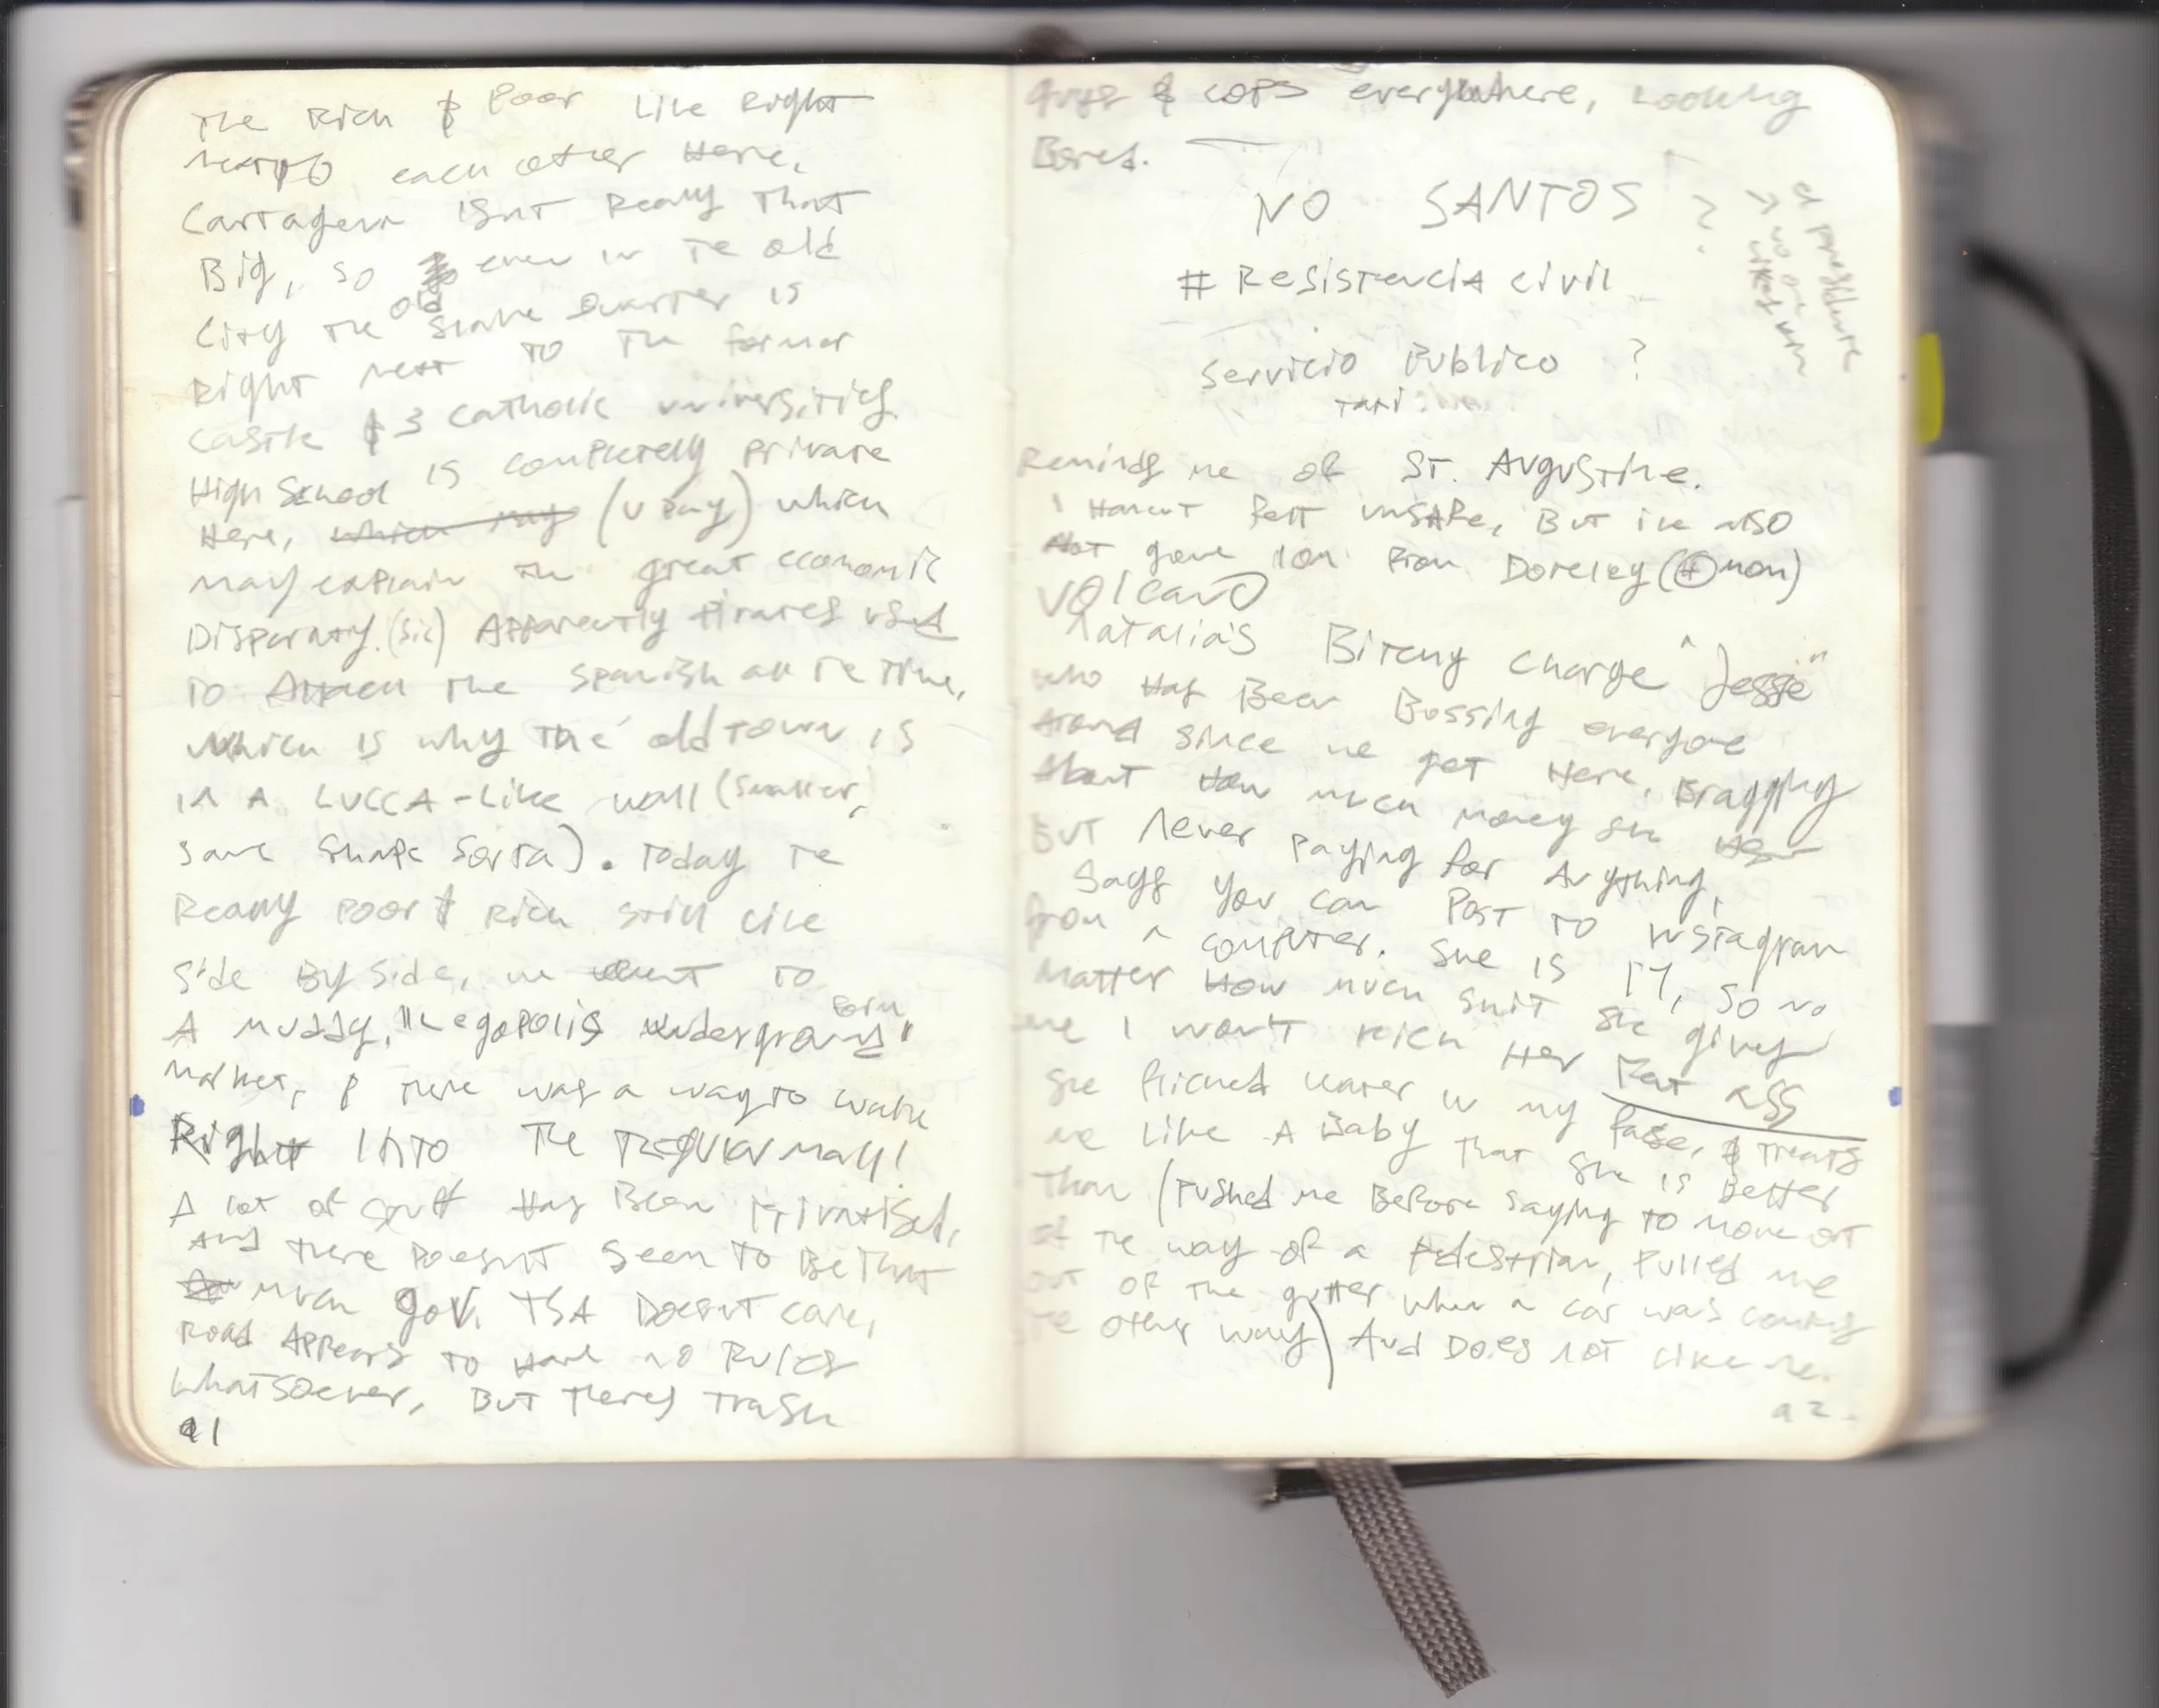 The Rich & Poor Live Right
next to each other Here.
Cartagena isnt Really That
Big, so even in Te old
City The old Slave Quarter is
Right next TO The former
Castle & 3 Catholic universities.
High School is completely private
Here, which may (U Pay) which
may explain The great economic
Disparaty. (sic) Apparently Pirates used
TO Attack The Spanish all Te Time,
which is why The old Town is
in A LUCCA-Like wall (smaller,
same Shape Sorta). Today Te
Really Poor & Rich still Live
Side By Side, we went TO
A muddy, "Legopolis underground"
Market, & There was a way to walk
Right INTO The Regular mall!
A lot of stuff Has Been Privatised,
And There Doesn't Seem To Be That
much gov. TSA Doesnt care,
Road Appears TO Have no Rules
Whatsoever, But There's Trash
91
guys & cops everywhere, Looking
Bored.
NO SANTOS ?
el presidente
→ no one likes him
# Resistencia civil
Servicio Publico ?
Taxi
Reminds me of ST. Augustine.
I Haven't felt unsafe, But i've also
Not gone 10m From Doreley (+ mom)
Volcano
Natalia's Bitchy charge "Jessie"
who Has Been Bossing everyone
Around since we got Here, Bragging
About How much money she Has
But Never Paying for Anything,
Says you can Post to Instagram
from a computer. She is 17, so no
Matter How much Shit she gives
me I won't kick Her Fat ass
She flicked water in my face, & Treats
me Like A Baby That She is Better
Than (Pushed me Before saying to move out
of Te way of a Pedestrian, Pulled me
out of The gutter when a car was coming
Te other way) And Does not Like me.
92